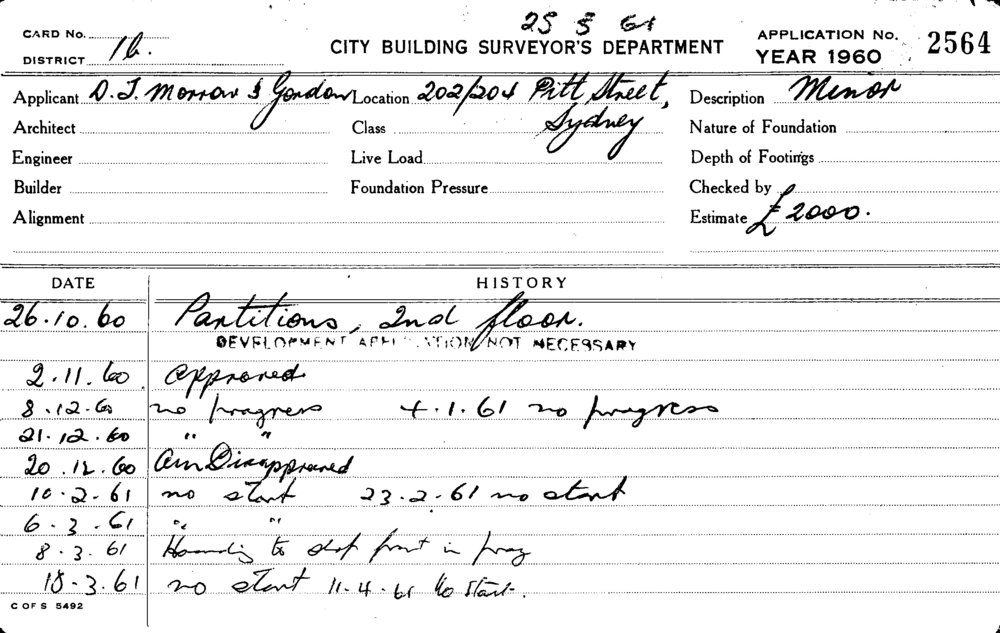 25 5 61
CARD No. 16.
DISTRICT
CITY BUILDING SURVEYOR'S DEPARTMENT
APPLICATION No. 2564
YEAR 1960
Applicant D. T. Morrow & Gordon Location 202/204 Pitt Street, Description Minor
Architect Class Sydney Nature of Foundation
Engineer Live Load Depth of Footings
Builder Foundation Pressure Checked by
Alignment Estimate £2000.
DATE HISTORY
26.10.60 Partitions, 2nd floor.
DEVELOPMENT APPLICATION NOT NECESSARY
2.11.60 Approved
8.12.60 no progress 4.1.61 no progress
21.12.60 " "
20.12.60 Am Disapproved
10.2.61 no start 23.2.61 no start
6.3.61 " "
8.3.61 Hoarding to shop front in prog
18.3.61 no start 11.4.61 No Start.
C OF S 5492